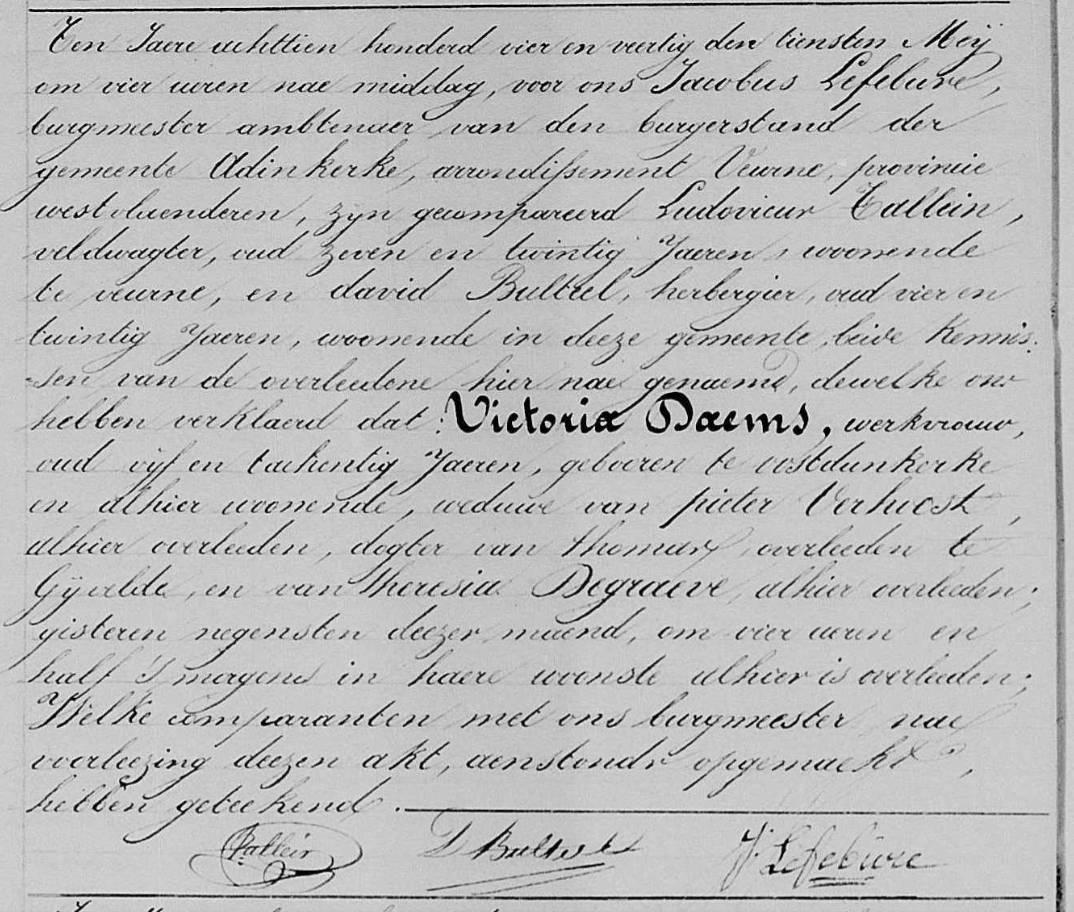 Ten Jaere achttien honderd vier en veertig den tiensten Meÿ
om vier uren nae middag, voor ons Jacobus Lefebure,
burgmeester ambtenaer van den burgerstand der
gemeente Adinkerke, arrondissement Veurne, provincie
westvlaenderen, zyn gecompareerd Ludovicus Tallein,
veldwagter, oud zeven en twintig Jaeren, woonende
te veurne, en david Bulteel, herbergier, oud vier en
twintig Jaeren, woonende in deeze gemeente, beide kennis-
-sen van de overleedene hier nae genaemd, dewelke ons
hebben verklaerd dat Victoria Daems, werkvrouw,
oud vijf en tachentig Jaeren, gebooren te oostdunkerke
en alhier woonende, weduwe van pieter Verhoest,
alhier overleeden, dogter van thomas, overleeden te
Gÿvelde, en van theresia Degraeve, alhier overleeden;
gisteren negensten deezer maend, om vier ueren en
half 's morgens in haere woonste alhier is overleeden;
Welke comparanten met ons burgmeester nae
voorleezing deezen akt, aenstonds opgemaekt,
hebben geteekend.
Tallein D Bulteel J. Lefebure